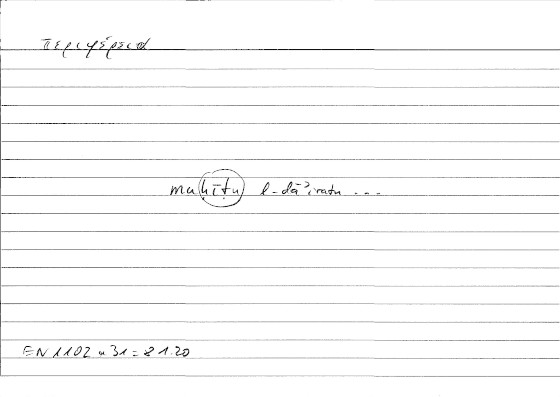 περιφέρεια
muḥīṭu l-dāʾiratu ...
EN 1102 a 31 = 81.20